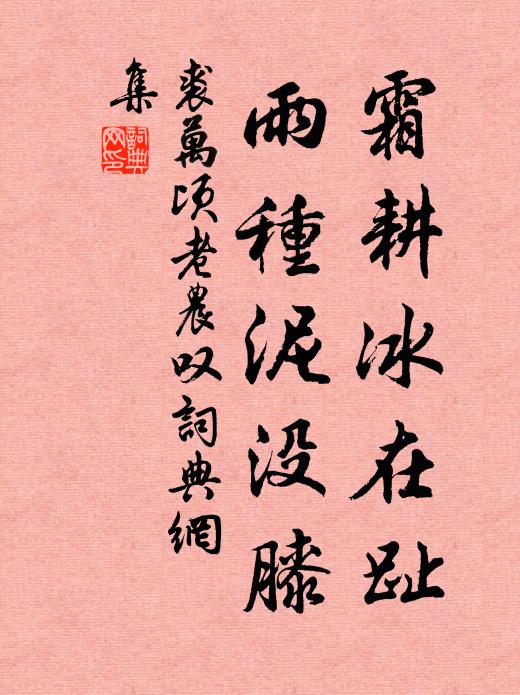 霜耕冰在趾
雨種泥没膝
裘萬頃老農叹詞典網
集
詞典網印